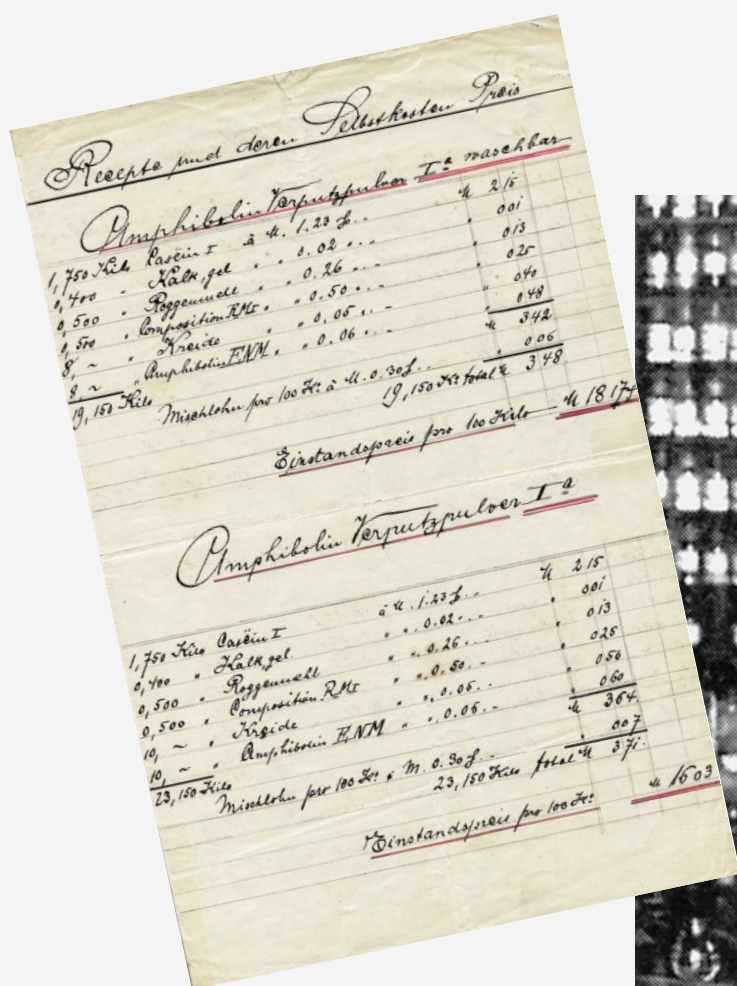 Recepte und deren Selbstkosten Preis
Amphibolin Verputzpulver Iª waschbar
1,750 Kilo Caseïn I à M. 1.23 M 2 15
0,400 " Kalk, gel " " 0.02 " 0 01
0,500 " Roggenmehl " " 0.26 " 0 13
0,500 " Composition RMI " " 0.50 " 0 25
8, ~ " Kreide " " 0.05 " 0 40
8, ~ " Amphibolin ENM " " 0.06 " 0 48
19,150 Kilo M 3 42
Mischlohn pro 100 Kº à M. 0.30 " 0 06
19,150 Kº total M 3 48
Einstandspreis pro 100 Kilo M 18 17
Amphibolin Verputzpulver Iª
1,750 Kilo Caseïn I à M. 1.23 M 2 15
0,400 " Kalk, gel " " 0.02 " 0 01
0,500 " Roggenmehl " " 0.26 " 0 13
0,500 " Composition RMI " " 0.50 " 0 25
10, ~ " Kreide " " 0.05 " 0 50
10, ~ " Amphibolin ENM " " 0.06 " 0 60
23,150 Kilo M 3 64
Mischlohn pro 100 Kº à M. 0.30 " 0 07
23,150 Kilo total M 3 71
Einstandspreis pro 100 Kº M 16 03